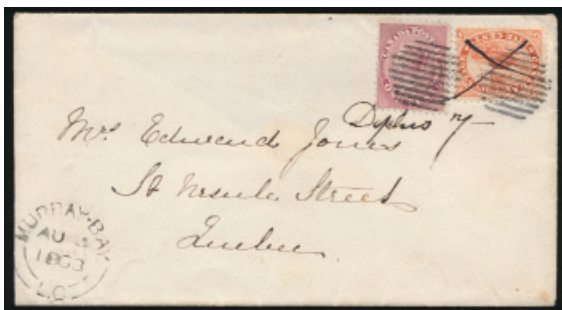 CANADA POST
Mrs Edward Jones
St Ursule Street
Quebec
MURRAY-BAY
AU
1863
L.C